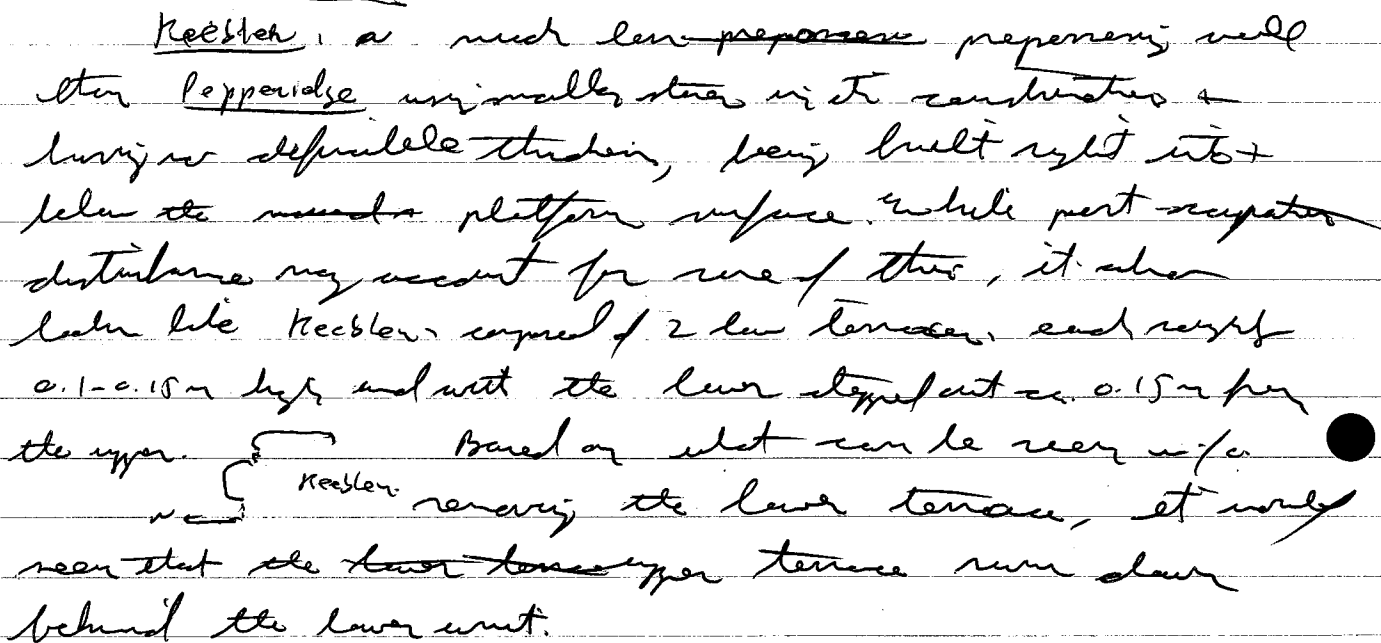 Keebler, a much less preposses prepossessing wall
than Pepperidge using smaller stones in its construction +
having no definable thickness, being built right into +
below the mound platform surface. While post-occupation
disturbance may account for some of this, it also
looks like Keebler composed of 2 low terraces, each roughly
0.1-0.15m high and with the lower stepped out ca. 0.15m from
the upper. Based on what can be seen w/o
Keebler removing the lower terrace, it would
seem that the lower terrace upper terrace runs down
behind the lower unit.